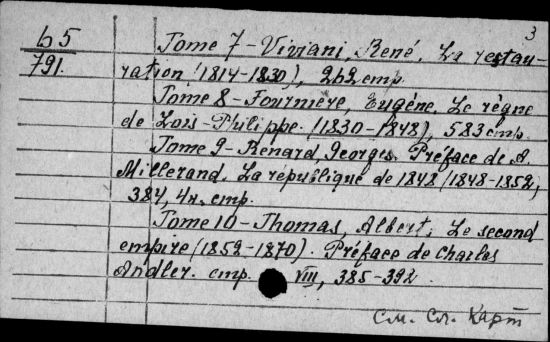 3
Б 5
791.
Tome 7 - Viviani, René. La restau-
ration (1814-1830), 262 стр.
Tome 8 - Fournière, Eugène. Le règne
de Lois-Philippe. (1830-1848), 583 стр.
Tome 9 - Renard, Georges. Préface de A.
Millerand. La republique de 1848 (1848-1852),
384, 4н. стр.
Tome 10 - Thomas, Albert. Le second
empire (1852-1870). Préface de Charles
Andler. стр. VIII, 385-392.
См. Сл. Карт